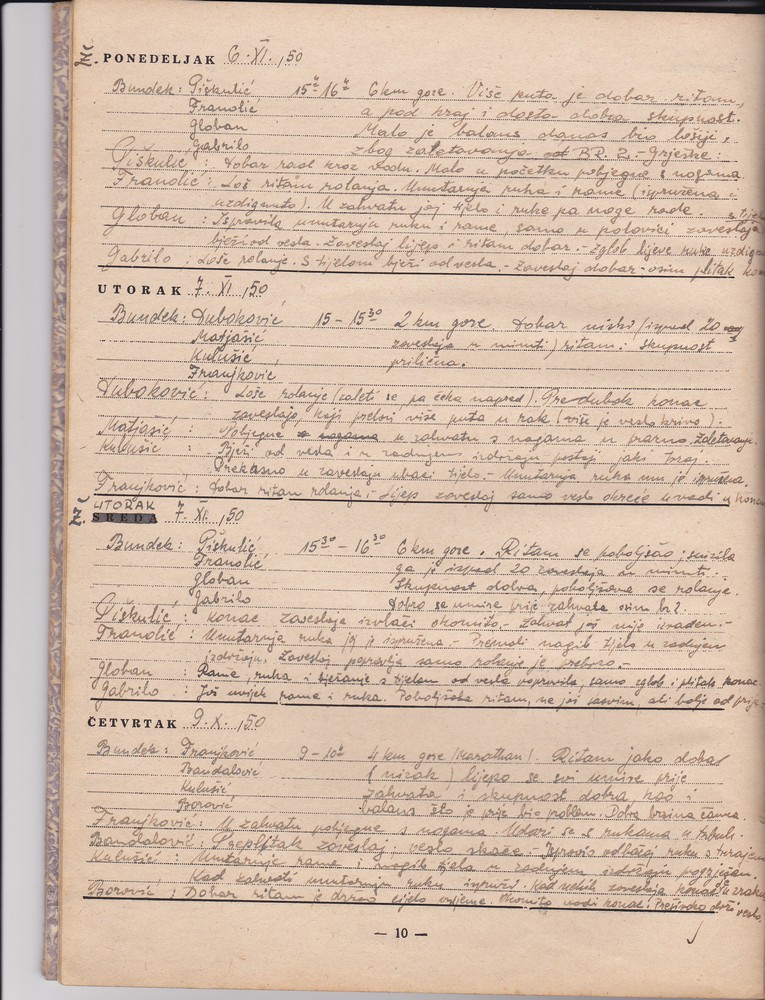 PONEDELJAK 6. XI. ,50
Bundek: Piškulić 15⁴-16⁴ 6 km gore. Više puta je dobar ritam,
Franolić a pod kraj i dosta dobra skupnost.
Globan Malo je balans danas bio lošiji,
Gabrilo zbog zaletavanja BR. 2. - Grješke:
Piškulić: Dobar rad kroz vodu. Malo u početku pobjegne s nogama.
Franolić: Loš ritam rolanja. Unutarnja ruka i rame (ispružena i
uzdignuto). U zahvatu joj tijelo i ruke pa noge rade.
Globan: Ispravila unutarnju ruku i rame, samo u polovici zaveslaja
bježi od vesla. Zaveslaj lijepo i ritam dobar. - Zglob lijeve ruke
Gabrilo: Loše rolanje. S tijelom bježi od vesla. - Zaveslaj dobar - osim plitak
UTORAK 7. XI ,50
Bundek: Duboković 15 - 15³⁰ 2 km gore. Dobar niski (ispod 20
Matjašić zaveslaja u minuti) ritam: skupnost
Kulušić prilična.
Franjković
Duboković: Loše rolanje (zaleti se pa čeka napred). Predubok konac
zaveslaja, koji pretvori više puta u rak (više je veslo krivo).
Matjašić: Pobjegne u zahvatu s nogama u prazno. Zaletavanje.
Kulušić: Bježi od vesla i u zadnjem izdržaju postoji jaki trzaj.
Prekasno u zaveslaju ubaci tijelo. - Unutarnja ruka mu je ispružena.
Franjković: Dobar ritam rolanja; lijep zaveslaj samo veslo okreće u vodi u
UTORAK
SREDA 7. XI. ,50
Bundek: Piškulić, 15³⁰ - 16³⁰ 6 km gore. Ritam se poboljšao; snizila
Franolić ga je ispod 20 zaveslaja u minuti. -
Globan Skupnost dobra, poboljšava se rolanje.
Gabrilo Dobro se umire prije zahvata osim br 2.
Piškulić: Konac zaveslaja izvlači okomito. Zahvat još nije izrađen. -
Franolić: Unutarnja ruka joj je ispružena. - Premali nagib tijela u zadnjem
izdržaju. Zaveslaj popravlja samo rolanje je prebrzo. -
Globan: Rame, ruka i bježanje s tijelom od vesla popravila, samo zglob i plitak konac.
Gabrilo: Još uvijek rame i ruka. Poboljšala ritam, ne još sasvim, ali bolje od prije.
ČETVRTAK 9. X. ,50
Bundek: Franjković 9 - 10⁴ 4 km gore (Marathan). Ritam jako dobar
Bandalović (nizak) lijepo se svi umire prije
Kulušić zahvata i skupnost dobra kao i
Borović balans što je prije bio problem. Dobra brzina čamca.
Franjković: U zahvatu pobjegne s nogama. Udari se s rukama u trbuh.
Bandalović: Preplitak zaveslaj, veslo skače. - Ispravio odbačaj ruku s
Kulušić: Unutarnje rame i nagib tijela u zadnjem izdržaju pogrješan.
Kod zahvati unutarnju ruku ispruži. Kod nekih zaveslaja konac u zraku
Borović: Dobar ritam je držao cijelo vrijeme. Okomito vadi konac. Previsoko drži veslo.
— 10 —